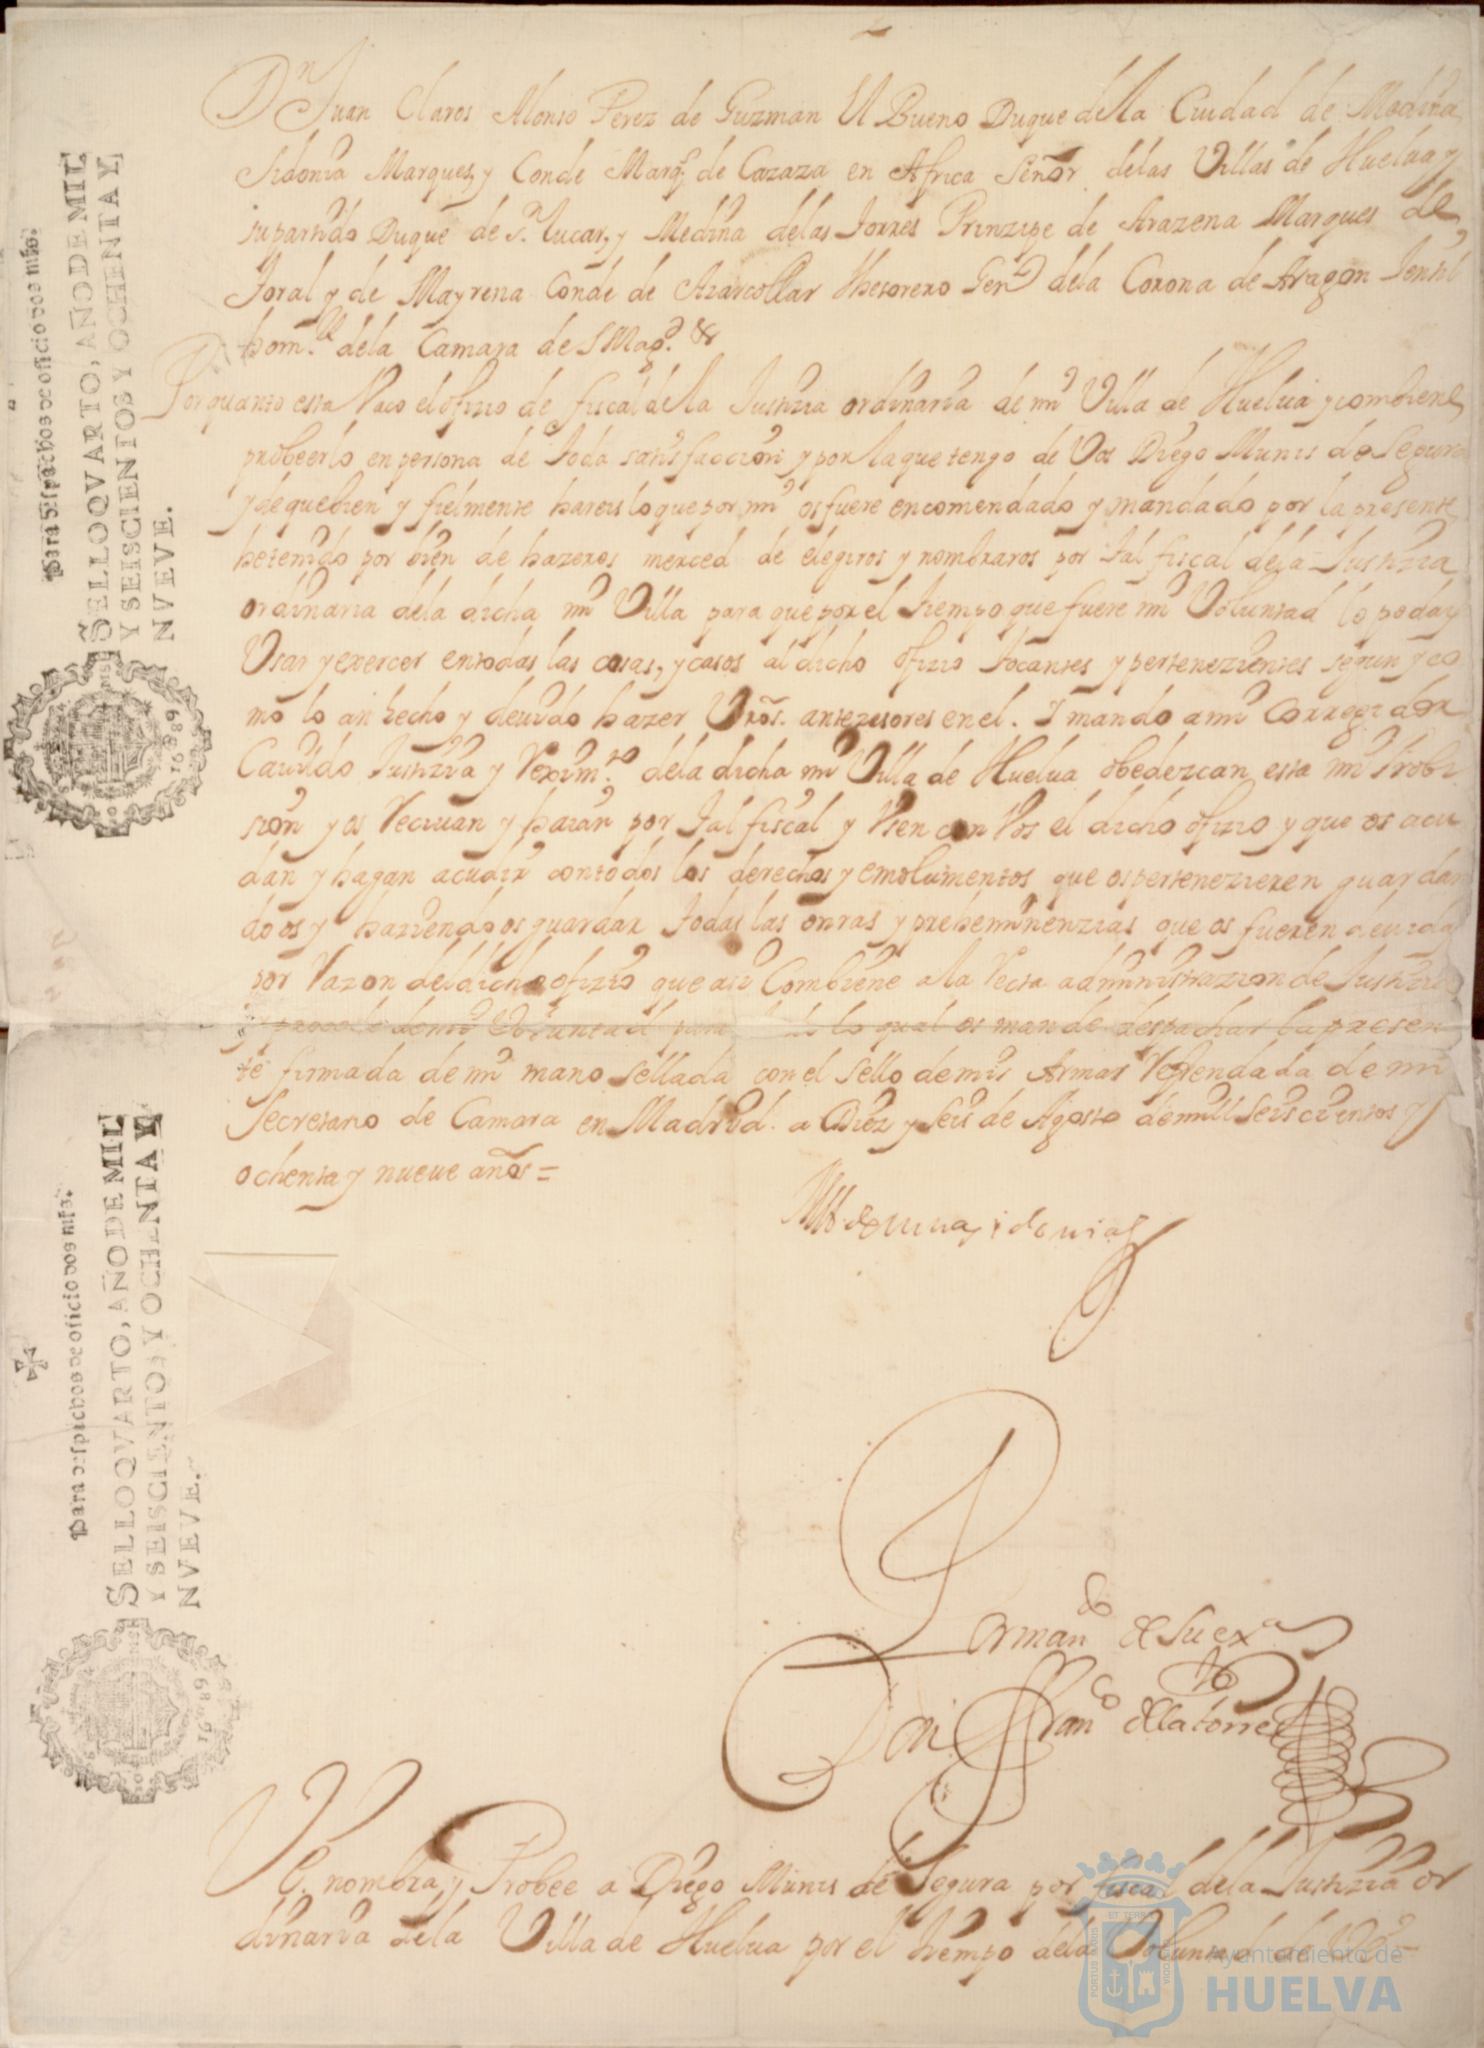 Dn Juan Claros Alonso Perez de Guzman El Bueno Duque de lla Ciudad de Medina
Sidonia Marques, y Conde Marqs de Cazaza en Africa Señor delas Villas de Huelua y
su partido Duque de Sn Lucar, y Medina delas Torres Prinzipe de Arazena Marques de
Toral y de Mayrena Conde de Azarcollar thesorero Genl dela Corona de Aragon Jentil
hom.e dela Camara de S Mag.d &
Por quanto esta Vaco el ofizio de fiscal de lla Justizia ordinaria de mi Villa de Huelua y combiene
probeerlo en persona de toda satisfaccion y por la que tengo de Vos Diego Munis de Segura
y de que bien y fielmente hareis lo que por mi os fuere encomendado y mandado por la presente
he tenido por bien de hazeros merced de elegiros y nombraros por tal fiscal dela Justizia
ordinaria dela dicha mi Villa para que por el tiempo que fuere mi Voluntad lo podays
Usar y exercer en todas las cosas, y casos al dicho ofizio tocantes y pertenezientes segun y co
mo lo an hecho y deuido hazer Vros. antezesores en el. I mando a mi Corregidor
Cauildo Justizia y Reximto dela dicha mi Villa de Huelua obedezcan esta mi Probi
sion y os Reciuan y haian por tal fiscal y Usen con Vos el dicho ofizio y que os acu
dan y hagan acudir con todos los derechos y emolumentos que os pertenezieren guardan
do os y haziendo os guardar todas las onrras y preheminenzias que os fueren deuidas
por Razon del dicho ofizio que asi Combiene a la Recta administrazion de Justizia
y prozede de mi Voluntad para lo qual os mande despachar la presen
te firmada de mi mano sellada con el sello de mis Armas Refrendada de mi
Secretario de Camara en Madrid. a Diez y seis de Agosto de mill seiscientos y
ochenta y nueue años =
Medinasidonia
Por mando de Su exa
Don Franco de la torre
V. E. nombra y Probee a Diego Munis de Segura por fiscal dela Justizia or
dinaria dela Villa de Huelua por el tiempo dela Voluntad de V.E. =
Para despachos de oficio dos mrs.
SELLO QVARTO, AÑO DE MIL
Y SEISCIENTOS Y OCHENTA Y
NVEVE.
1689
Para despachos de oficio dos mrs.
SELLO QVARTO, AÑO DE MIL
Y SEISCIENTOS Y OCHENTA Y
NVEVE.
1689
PORTUS MARIS
ET TERRÆ
CUSTODIA
Ayuntamiento de
HUELVA